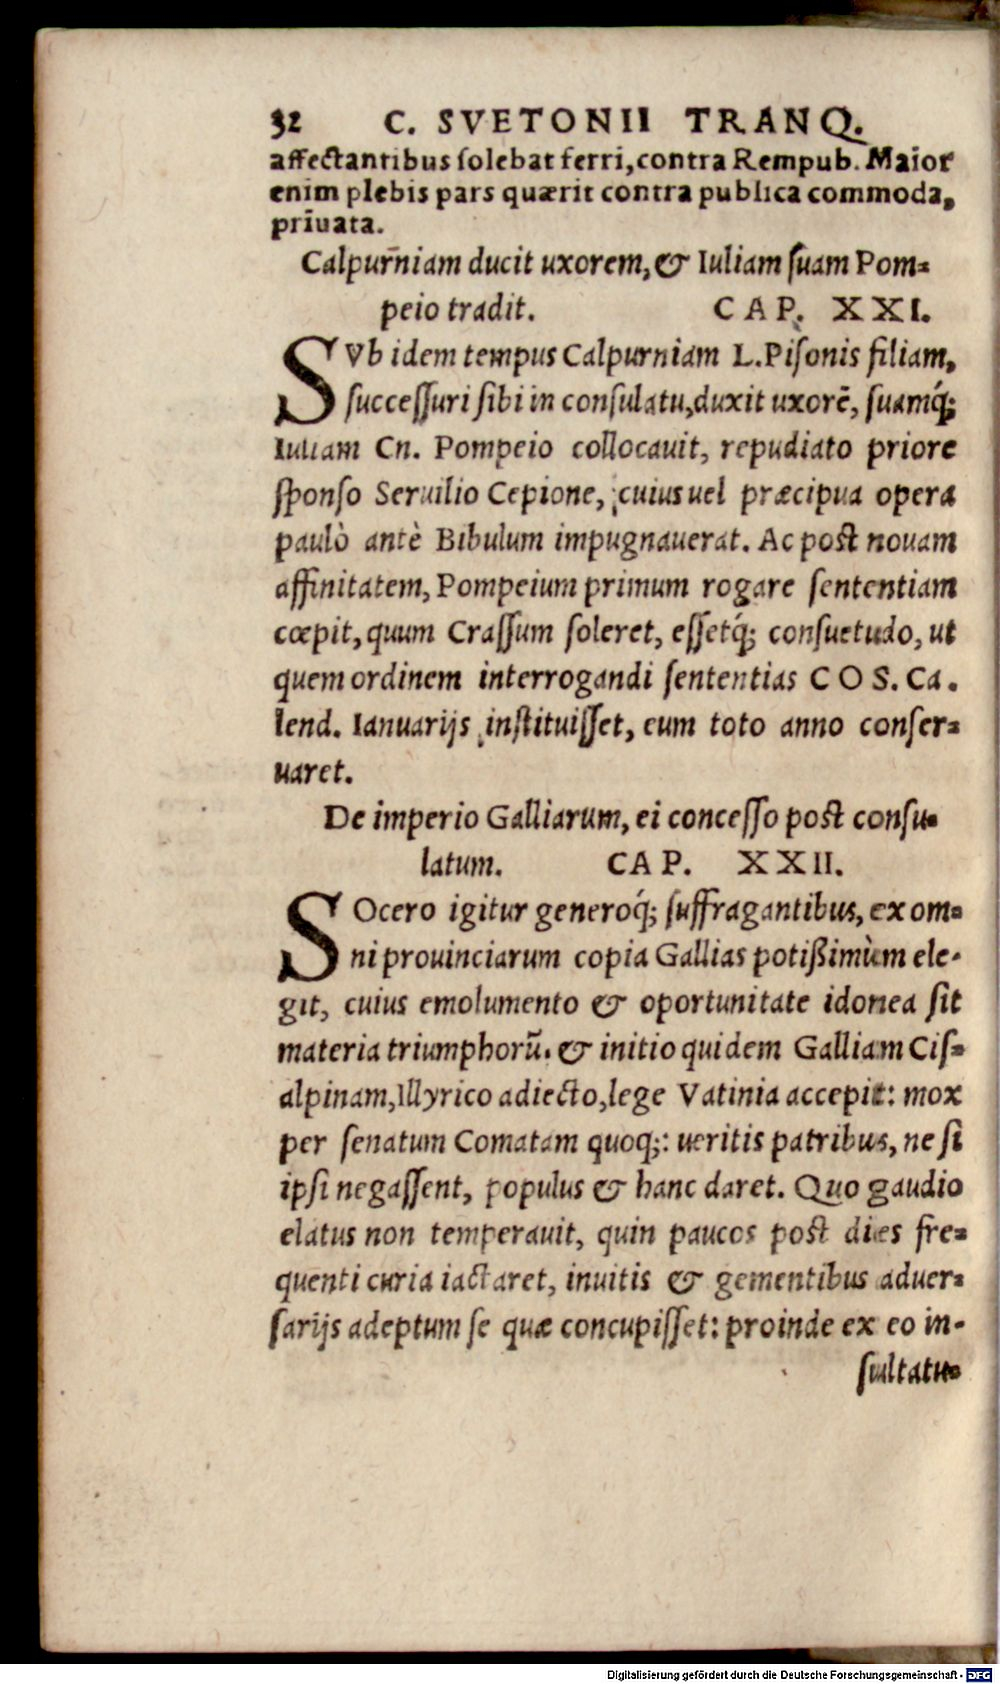 32 C. SVETONII TRANQ.
affectantibus solebat ferri, contra Rempub. Maior
enim plebis pars quærit contra publica commoda,
priuata.
Calpurniam ducit uxorem, & Iuliam suam Pom-
peio tradit. CAP. XXI.
SVb idem tempus Calpurniam L. Pisonis filiam,
successuri sibi in consulatu, duxit uxorē, suamq́;
Iuliam Cn. Pompeio collocauit, repudiato priore
sponso Seruilio Cepione, cuius uel præcipua opera
paulò antè Bibulum impugnauerat. Ac post nouam
affinitatem, Pompeium primum rogare sententiam
cœpit, quum Crassum soleret, essetq́; consuetudo, ut
quem ordinem interrogandi sententias COS. Ca.
lend. Ianuarijs instituisset, eum toto anno conser-
uaret.
De imperio Galliarum, ei concesso post consu-
latum. CAP. XXII.
SOcero igitur generoq́; suffragantibus, ex om-
ni prouinciarum copia Gallias potißimùm ele-
git, cuius emolumento & oportunitate idonea sit
materia triumphorū. & initio quidem Galliam Cis-
alpinam, Illyrico adiecto, lege Vatinia accepit: mox
per senatum Comatam quoq;: ueritis patribus, ne si
ipsi negassent, populus & hanc daret. Quo gaudio
elatus non temperauit, quin paucos post dies fre-
quenti curia iactaret, inuitis & gementibus aduer-
sarijs adeptum se quæ concupisset: proinde ex eo in-
sultatu-
Digitalisierung gefördert durch die Deutsche Forschungsgemeinschaft - DFG